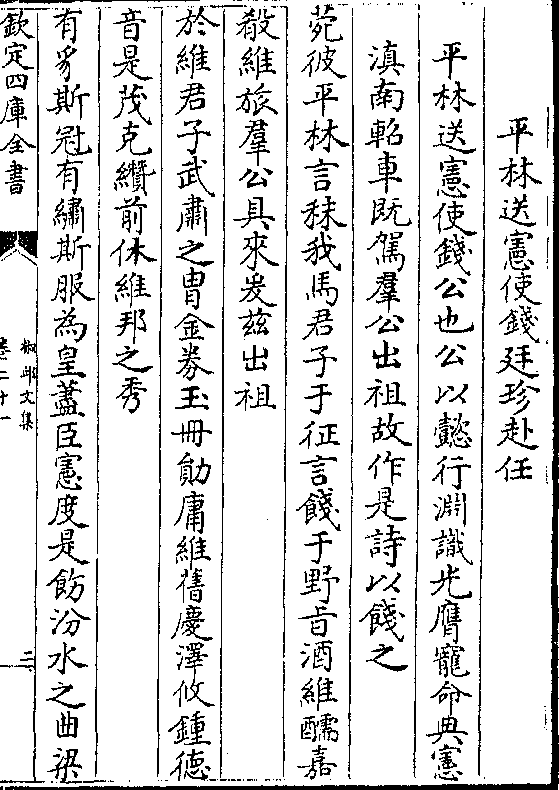 平林送憲使錢廷珍赴任
平林送憲使錢公也公以懿行淵識光膺寵命典憲
滇南軺車既駕羣公出祖故作是詩以餞之
菀彼平林言秣我馬君子于征言餞于野旨酒維醹嘉
殽維旅羣公具來爰茲出祖
於維君子武肅之胄金券玉冊勛庸維舊慶澤攸鍾德
音是茂克纘前休維邦之秀
有豸斯冠有繡斯服為皇藎臣憲度是飭汾水之曲梁
欽定四庫全書
椒邱文集
卷二十一
二